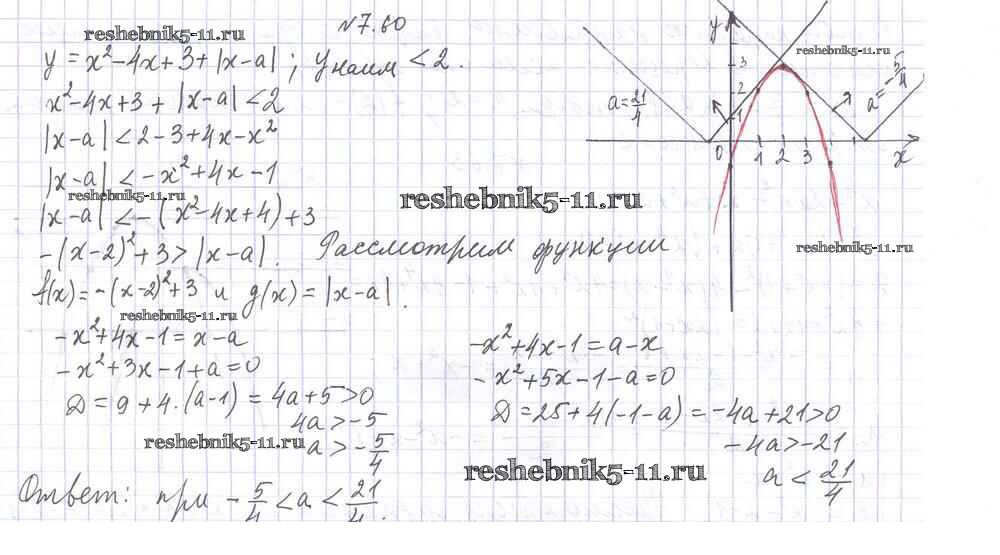 №7.60
reshebnik5-11.ru
y = x² - 4x + 3 + |x - a| ; y наим < 2.
x² - 4x + 3 + |x - a| < 2
|x - a| < 2 - 3 + 4x - x²
|x - a| < -x² + 4x - 1
reshebnik5-11.ru
|x - a| < -(x² - 4x + 4) + 3
-(x - 2)² + 3 > |x - a|. Рассмотрим функции
f(x) = -(x - 2)² + 3 и g(x) = |x - a|.
reshebnik5-11.ru
-x² + 4x - 1 = x - a
-x² + 3x - 1 + a = 0
D = 9 + 4·(a - 1) = 4a + 5 > 0
4a > -5
reshebnik5-11.ru
a > -5/4
-x² + 4x - 1 = a - x
-x² + 5x - 1 - a = 0
D = 25 + 4(-1 - a) = -4a + 21 > 0
-4a > -21
reshebnik5-11.ru
a < 21/4
Ответ: при -5/4 < a < 21/4.
y
reshebnik5-11.ru
3
2
1
a = 21/4
a = -5/4
0 1 2 3 x
reshebnik5-11.ru
reshebnik5-11.ru